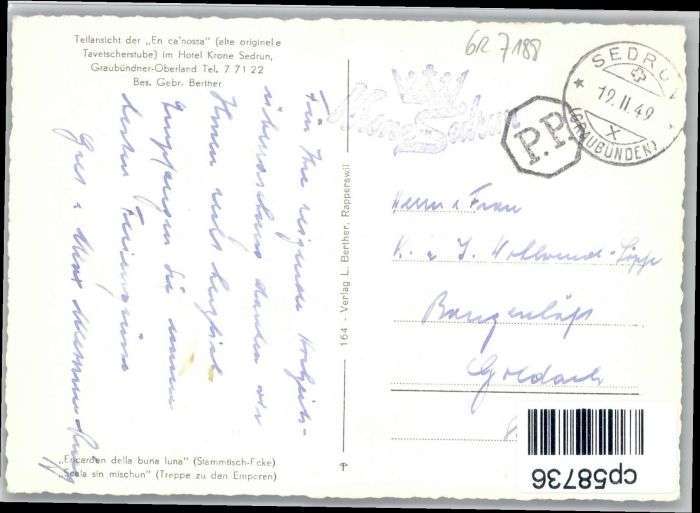 Teilansicht der „En ca'nossa" (alte originele
Tavetscherstube) im Hotel Krone Sedrun,
Graubündner-Oberland Tel. 7 71 22
Bes. Gebr. Berther
GR 7188
SEDRUN
19.II.49
(GRAUBÜNDEN)
P.P.
Krone Sedrun
Für Ihre
Hochzeits-
danken wir
Ihnen recht herzlich.
Empfangen Sie unsere
besten Feriengrüsse
164 - Verlag L. Berther, Rapperswil
Herrn u Frau
Goldach
„Encarden della buna luna" (Stammtisch-Ecke)
„Scala sin mischun" (Treppe zu den Emporen)
cp58736